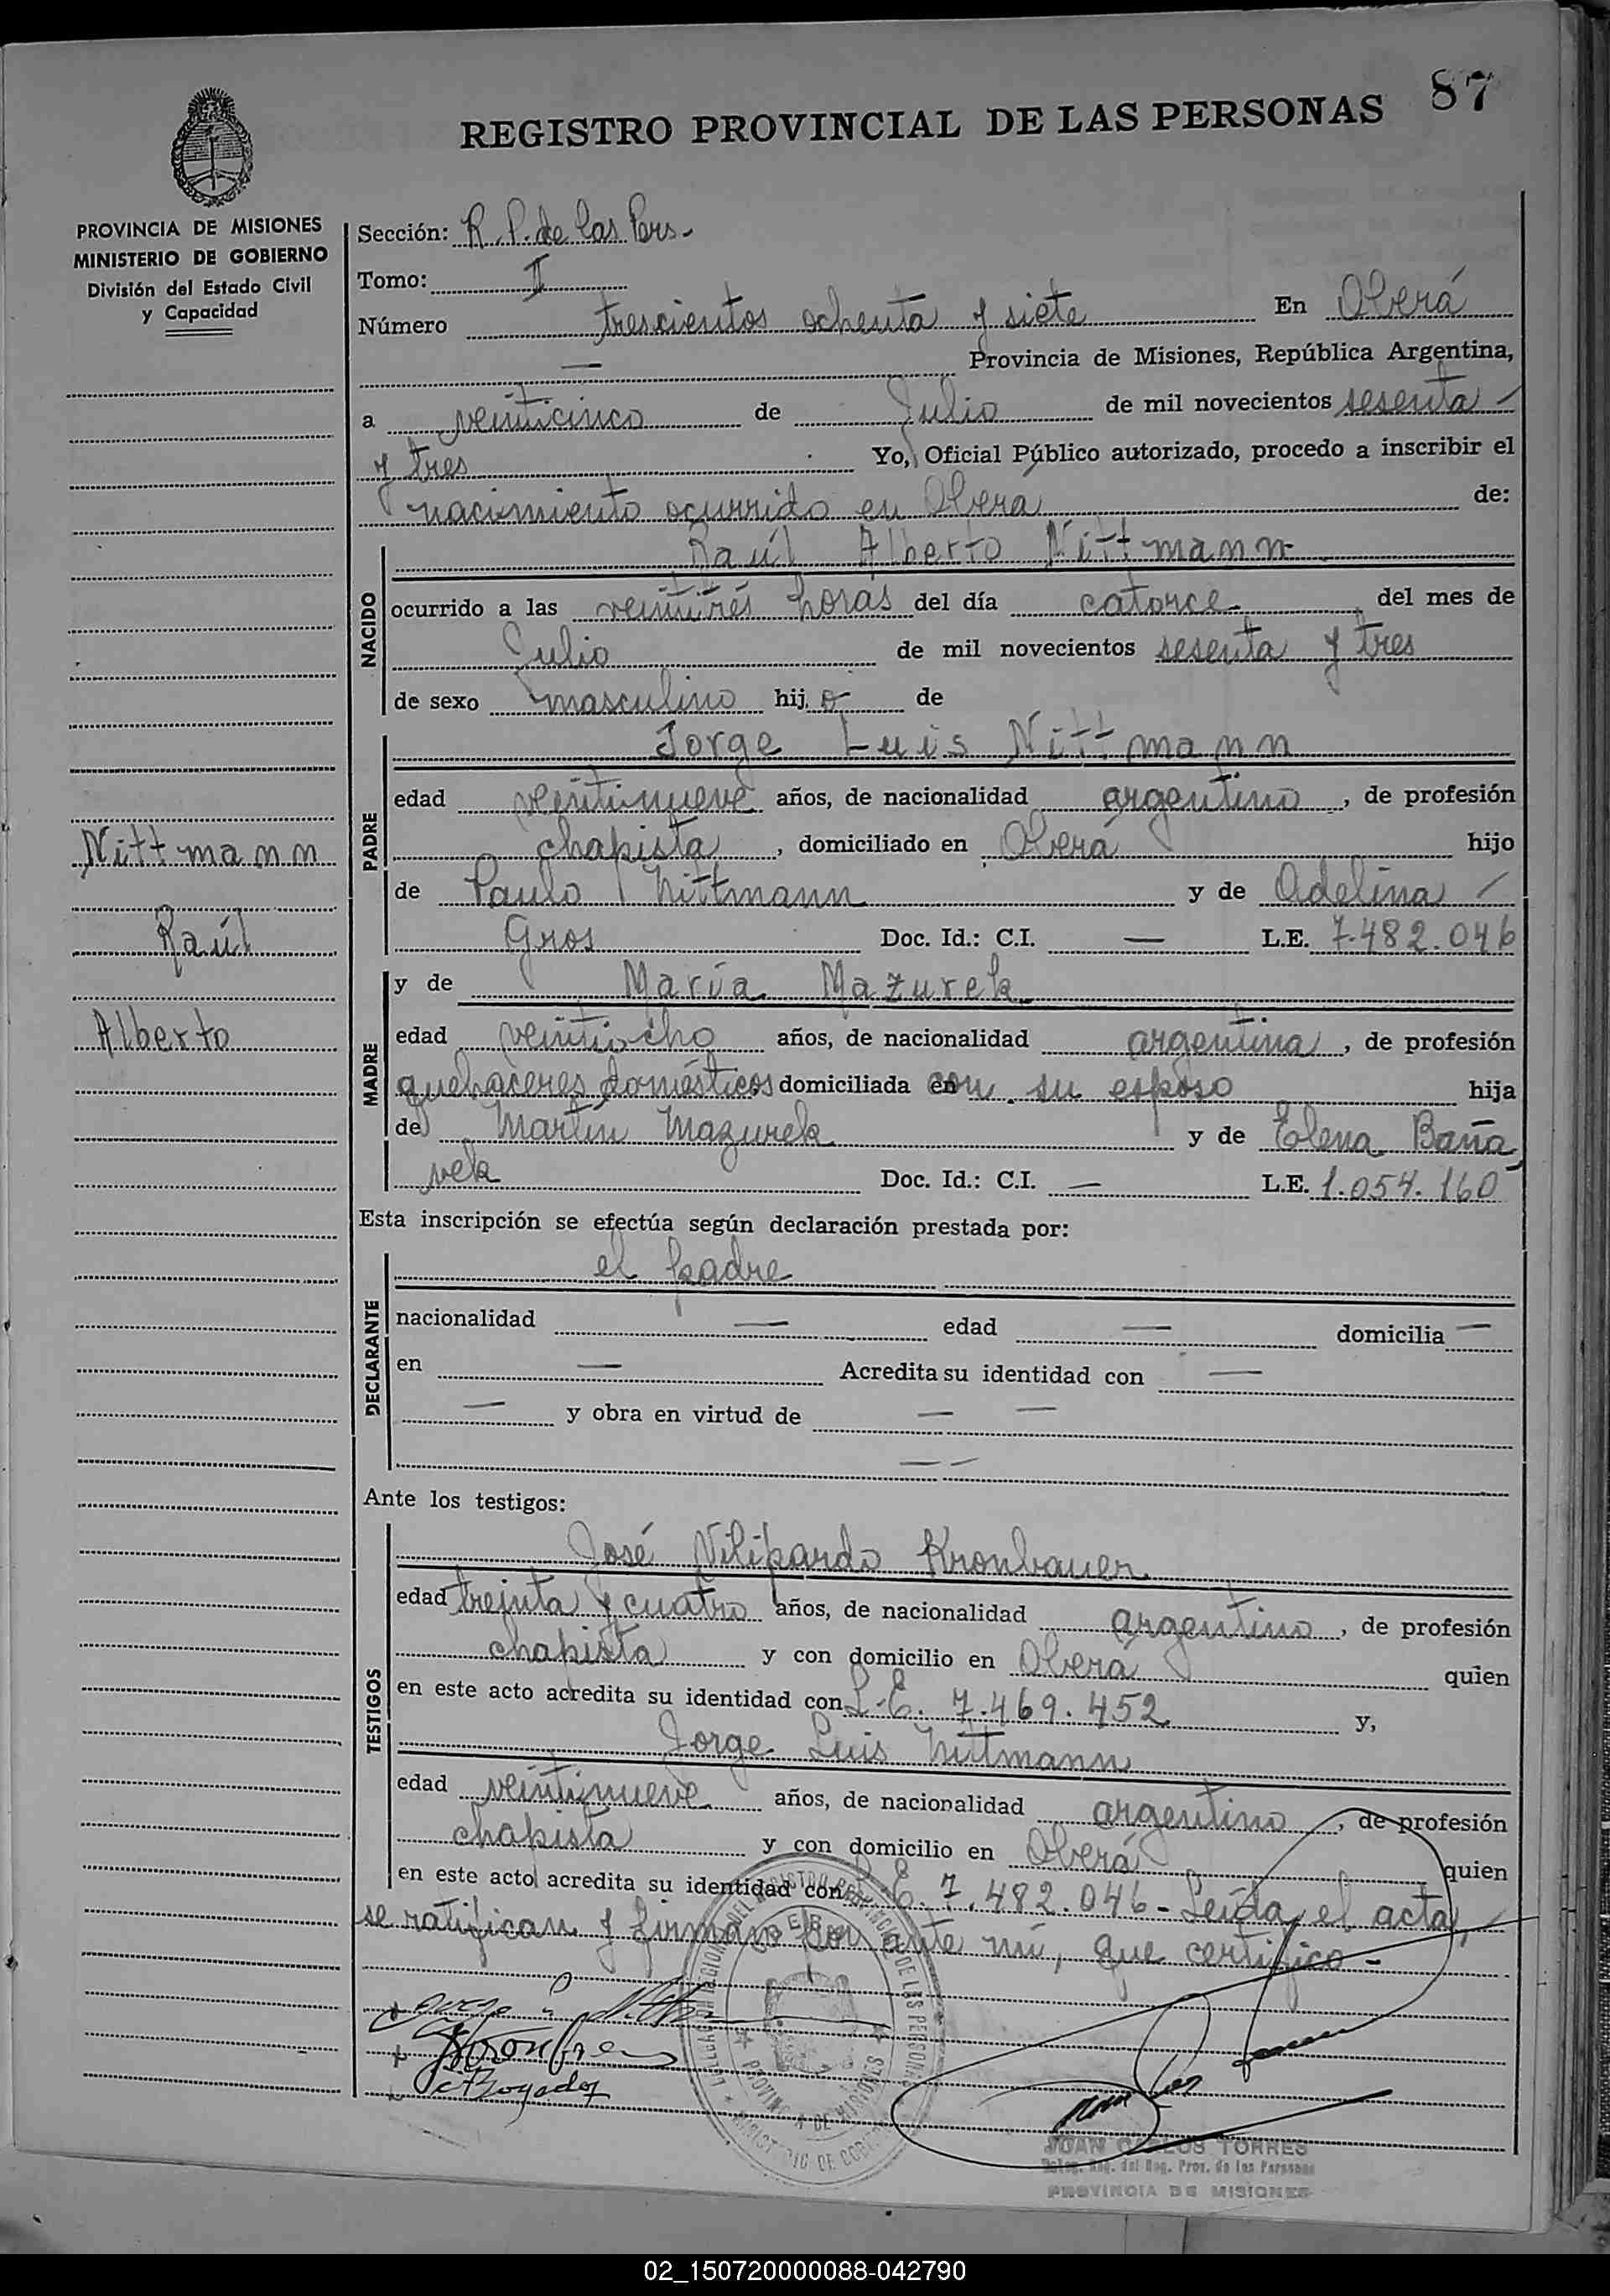 87
REGISTRO PROVINCIAL DE LAS PERSONAS
PROVINCIA DE MISIONES
MINISTERIO DE GOBIERNO
División del Estado Civil
y Capacidad
Sección: R. P. de las Pers.
Tomo: II
Número trescientos ochenta y siete En Oberá
— Provincia de Misiones, República Argentina,
a veinticinco de Julio de mil novecientos sesenta
y tres Yo, Oficial Público autorizado, procedo a inscribir el
nacimiento ocurrido en Oberá de:
NACIDO
Raúl Alberto Nittmann
ocurrido a las veintitrés horas del día catorce del mes de
Julio de mil novecientos sesenta y tres
de sexo masculino hijo de
PADRE
Jorge Luis Nittmann
edad veintinueve años, de nacionalidad argentino, de profesión
chapista, domiciliado en Oberá hijo
de Paulo Nittmann y de Adelina
Gros Doc. Id.: C.I. — L.E. 7.482.046
Nittmann
Raúl
Alberto
MADRE
y de María Mazurek
edad veintiocho años, de nacionalidad argentina, de profesión
quehaceres domésticos domiciliada en con su esposo hija
de Martín Mazurek y de Elena Baña
vek Doc. Id.: C.I. — L.E. 1.054.160
Esta inscripción se efectúa según declaración prestada por:
DECLARANTE
el padre
nacionalidad — edad — domicilia —
en — Acredita su identidad con —
— y obra en virtud de — —
— —
Ante los testigos:
TESTIGOS
José Kronbauer
edad treinta y cuatro años, de nacionalidad argentino, de profesión
chapista y con domicilio en Oberá quien
en este acto acredita su identidad con L.E. 7.469.452 y,
Jorge Luis Nittmann
edad veintinueve años, de nacionalidad argentino, de profesión
chapista y con domicilio en Oberá quien
en este acto acredita su identidad con L.E. 7.482.046 - Leída el acta,
se ratifican y firman por ante mí, que certifico -
JUAN CARLOS TORRES
Deleg. Reg. del Reg. Prov. de las Personas
PROVINCIA DE MISIONES
02_150720000088-042790